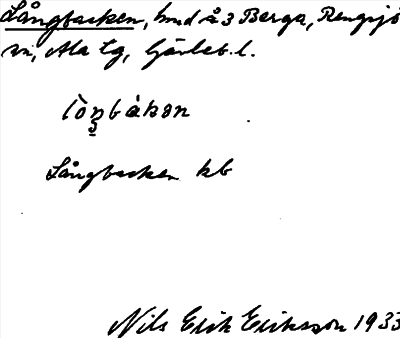 Långbacken, hmd å 3 Berga, Rengsjö
sn, Ala tg, Gävleb. l.
lòŋbàkən
Långbacken kb
Nils Erik Eriksson 1933